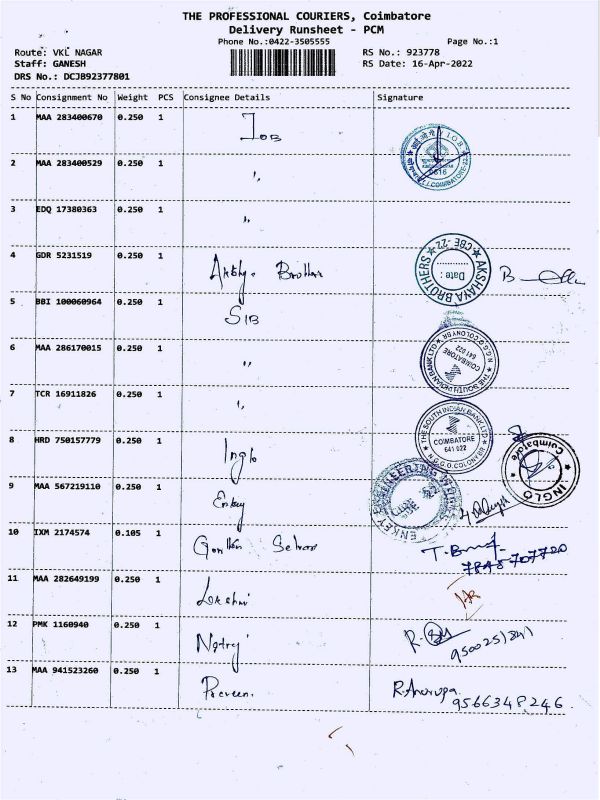 THE PROFESSIONAL COURIERS, Coimbatore
Delivery Runsheet - PCM
Phone No.:0422-3505555 Page No.:1
Route: VKL NAGAR RS No.: 923778
Staff: GANESH RS Date: 16-Apr-2022
DRS No.: DCJB92377801
S No Consignment No Weight PCS Consignee Details Signature
1 MAA 283400670 0.250 1 IOB
2 MAA 283400529 0.250 1 "
3 EDQ 17380363 0.250 1 "
4 GDR 5231519 0.250 1 Brothers
AKSHANA BROTHERS CBE-22 Date :
5 BBI 100060964 0.250 1 SIB
6 MAA 286170015 0.250 1 "
THE SOUTH INDIAN BANK LTD N.G.G.O.COLONY BR COIMBATORE 641 022
7 TCR 16911826 0.250 1 "
THE SOUTH INDIAN BANK LTD COIMBATORE 641 022
8 HRD 750157779 0.250 1 Inglo
INGLO Coimbatore
9 MAA 567219110 0.250 1 Enkey
10 IXM 2174574 0.105 1 Selvan
7845707720
11 MAA 282649199 0.250 1 Lakshmi
12 PMK 1160940 0.250 1
13 MAA 941523260 0.250 1 Praveen
R.Anurupa
9566348246